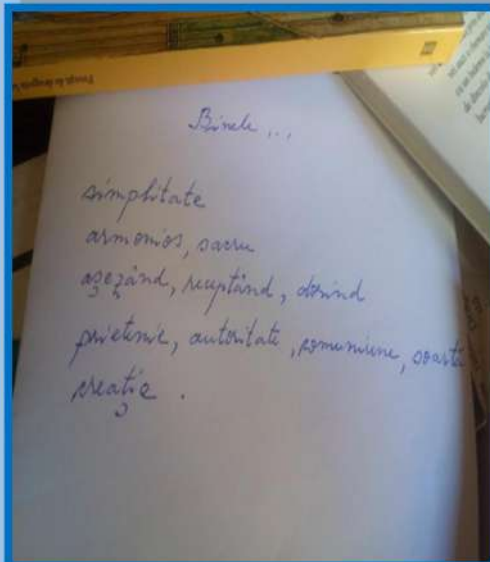 Binele ...
simplitate
armonios, sacru
așezând, receptând, dorind
prietenie, autoritate, comuniune, soartă
creație.